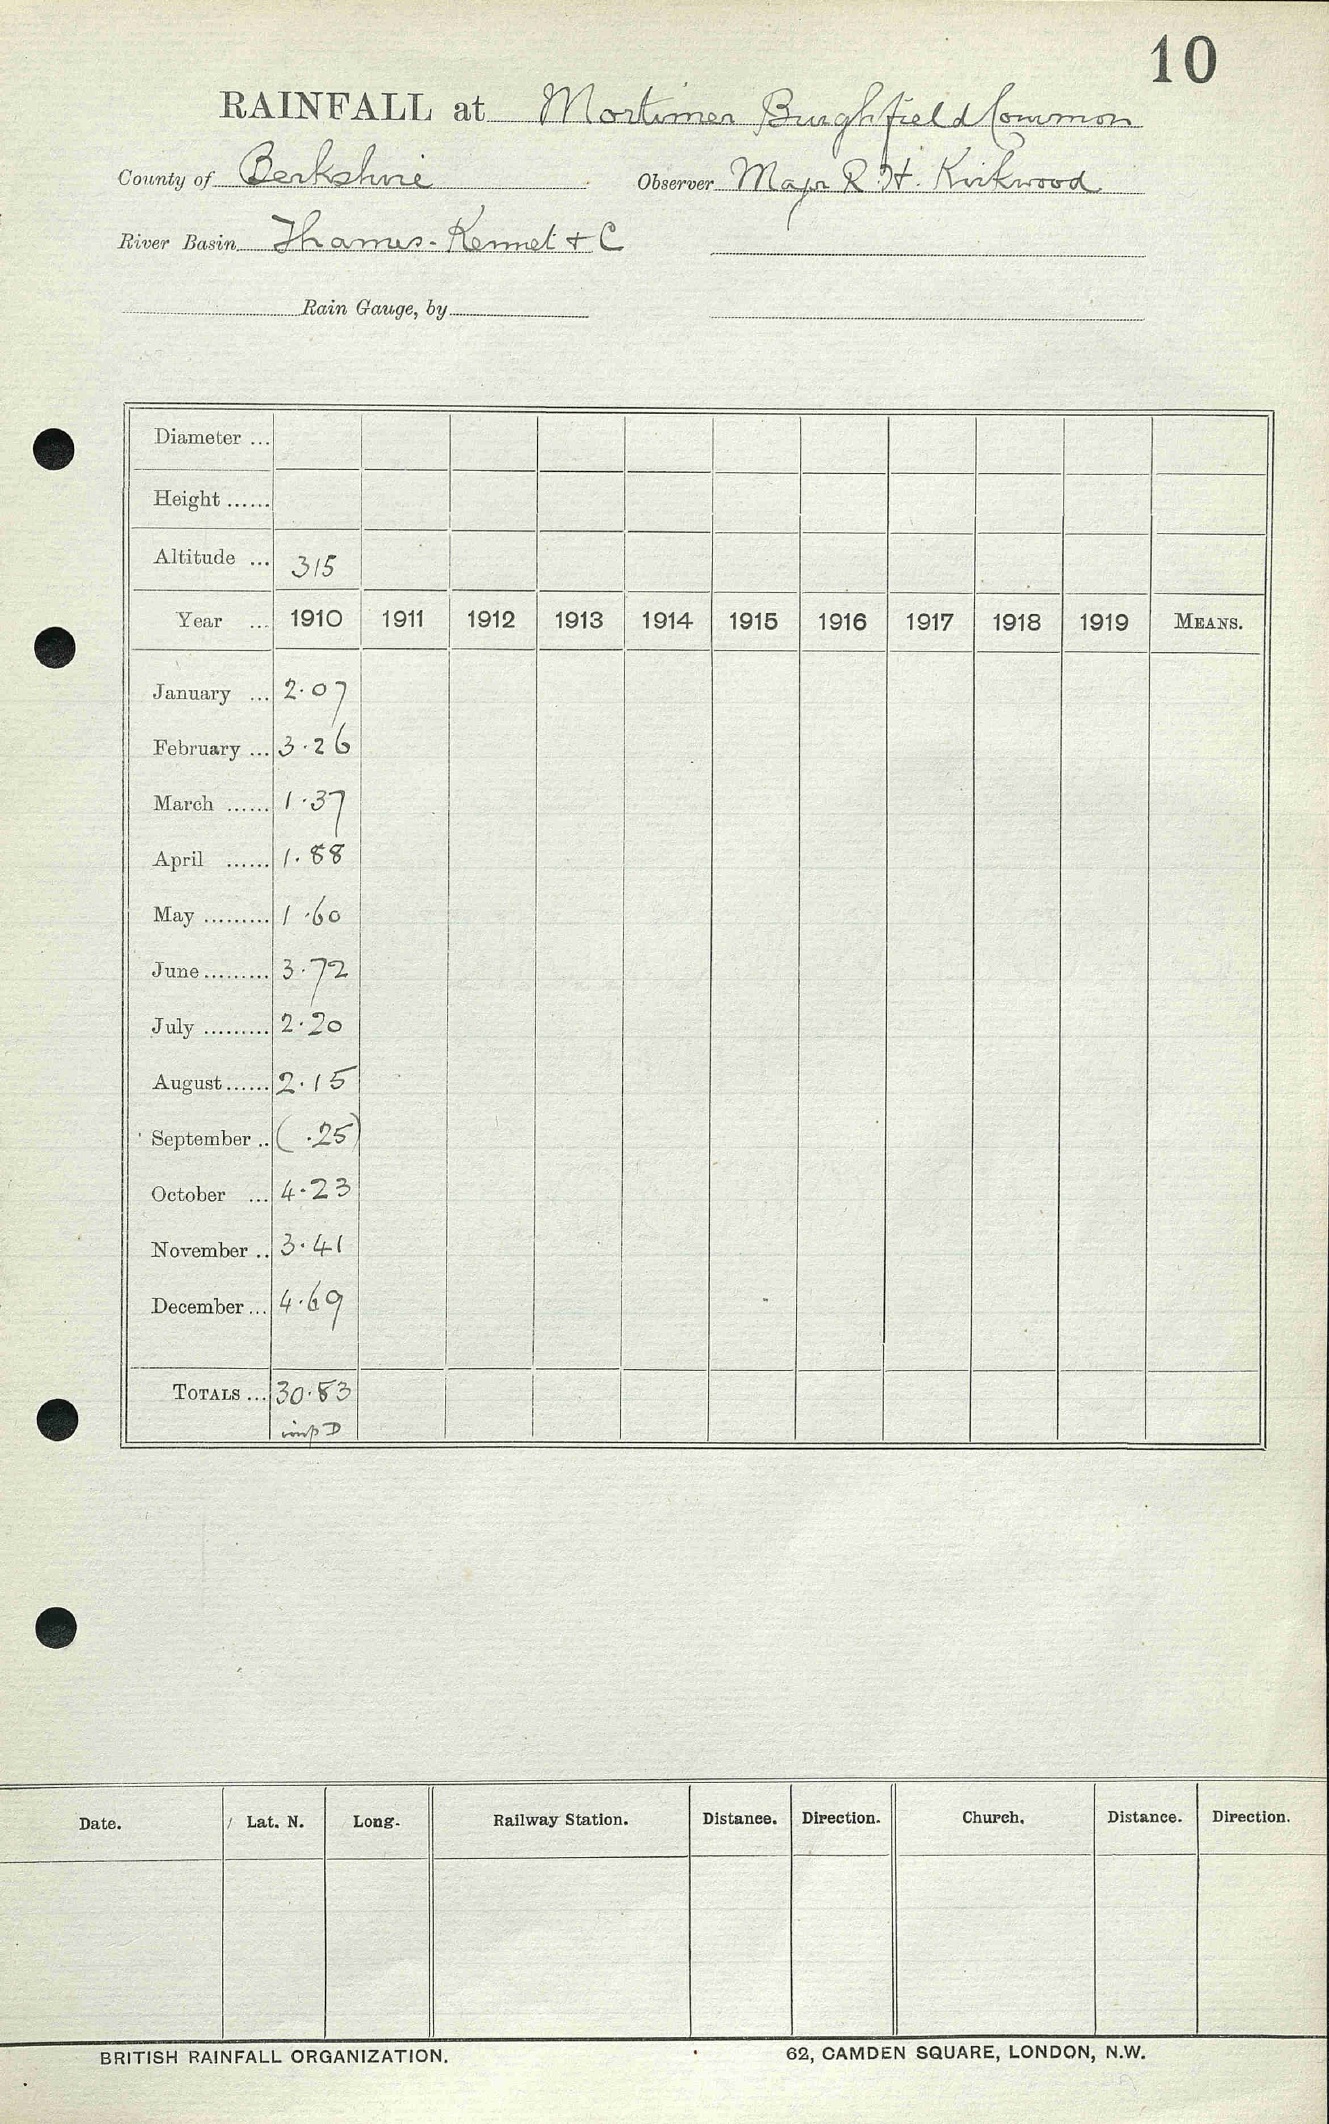 10
RAINFALL at Mortimer Burghfield Common
County of Berkshire Observer Major R. H. Kirkwood
River Basin Thames - Kennet & C
Rain Gauge, by
Diameter ...
Height ......
Altitude ... 315
Year ... 1910 1911 1912 1913 1914 1915 1916 1917 1918 1919 MEANS.
January ... 2.07
February ... 3.26
March ...... 1.37
April ...... 1.88
May ......... 1.60
June ......... 3.72
July ......... 2.20
August ...... 2.15
September .. ( .25)
October ... 4.23
November .. 3.41
December ... 4.69
TOTALS ... 30.83
imp D
Date. Lat. N. Long. Railway Station. Distance. Direction. Church. Distance. Direction.
BRITISH RAINFALL ORGANIZATION. 62, CAMDEN SQUARE, LONDON, N.W.